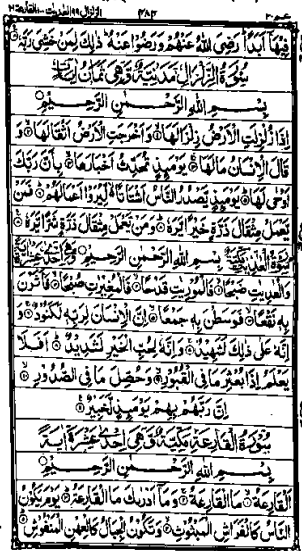 الزلزال ٩٩ العٰديٰت ١٠٠ القارعة ١٠١ ٤٨٣ عم ٣٠
فِيْهَاۤ اَبَدًاؕ رَضِیَ اللّٰهُ عَنْهُمْ وَ رَضُوْا عَنْهُؕ ذٰلِكَ لِمَنْ خَشِیَ رَبَّهٗ
سُوْرَةُ الزِّلْزَالِ مَدَنِيَّةٌ وَّهِيَ ثَمَانُ اٰيَاتٍ
بِسْمِ اللّٰهِ الرَّحْمٰنِ الرَّحِيْمِ
اِذَا زُلْزِلَتِ الْاَرْضُ زِلْزَالَهَا وَ اَخْرَجَتِ الْاَرْضُ اَثْقَالَهَا وَ
قَالَ الْاِنْسَانُ مَا لَهَا یَوْمَىِٕذٍ تُحَدِّثُ اَخْبَارَهَا بِاَنَّ رَبَّكَ
اَوْحٰى لَهَا یَوْمَىِٕذٍ یَّصْدُرُ النَّاسُ اَشْتَاتًا لِّیُرَوْا اَعْمَالَهُمْ فَمَنْ
یَّعْمَلْ مِثْقَالَ ذَرَّةٍ خَیْرًا یَّرَهٗ وَ مَنْ یَّعْمَلْ مِثْقَالَ ذَرَّةٍ شَرًّا یَّرَهٗ
سُوْرَةُ الْعٰدِيٰتِ مَكِّيَّةٌ بِسْمِ اللّٰهِ الرَّحْمٰنِ الرَّحِيْمِ وَّهِيَ اِحْدٰى عَشْرَةَ اٰيَةً
وَ الْعٰدِیٰتِ ضَبْحًا فَالْمُوْرِیٰتِ قَدْحًا فَالْمُغِیْرٰتِ صُبْحًا فَاَثَرْنَ
بِهٖ نَقْعًا فَوَسَطْنَ بِهٖ جَمْعًا اِنَّ الْاِنْسَانَ لِرَبِّهٖ لَكَنُوْدٌ وَ
اِنَّهٗ عَلٰى ذٰلِكَ لَشَهِیْدٌ وَ اِنَّهٗ لِحُبِّ الْخَیْرِ لَشَدِیْدٌ اَفَلَا
یَعْلَمُ اِذَا بُعْثِرَ مَا فِی الْقُبُوْرِ وَ حُصِّلَ مَا فِی الصُّدُوْرِ
اِنَّ رَبَّهُمْ بِهِمْ یَوْمَىِٕذٍ لَّخَبِیْرٌ
سُوْرَةُ الْقَارِعَةِ مَكِّيَّةٌ وَّهِيَ اِحْدٰى عَشْرَةَ اٰيَةً
بِسْمِ اللّٰهِ الرَّحْمٰنِ الرَّحِيْمِ
اَلْقَارِعَةُ مَا الْقَارِعَةُ وَ مَاۤ اَدْرٰىكَ مَا الْقَارِعَةُ یَوْمَ یَكُوْنُ
النَّاسُ كَالْفَرَاشِ الْمَبْثُوْثِ وَ تَكُوْنُ الْجِبَالُ كَالْعِهْنِ الْمَنْفُوْشِ